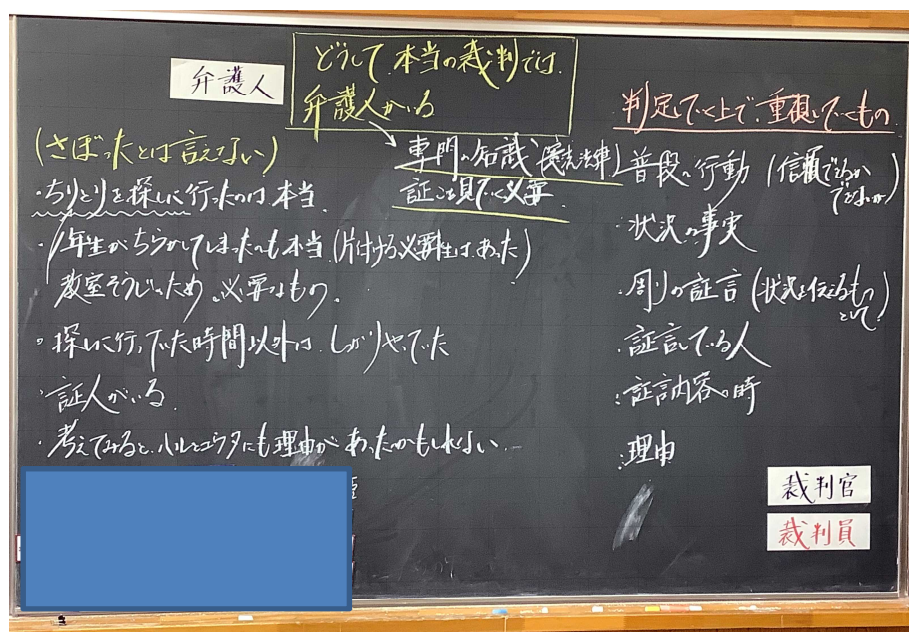 弁護人
どうして本当の裁判では
弁護人がいる
専門の知識(憲法法律)
証こを見ていく必要
(さぼったとは言えない)
・ちりとりを探しに行ったのは本当
・1年生がちらかしてしまったのも本当(片付ける必要性はあった)
教室そうじのため。必要なもの。
・探しに行っていた時間以外は、しっかりやっていた
・証人がいる。
・考えてみると、ハルとコウタにも理由があったかもしれない
判定していく上で重視していくもの
普段の行動(信頼できるか
できないか)
・状況の事実
・周りの証言(状況を伝えるもの
として)
・証言している人
・証言内容の時
・理由
裁判官
裁判員